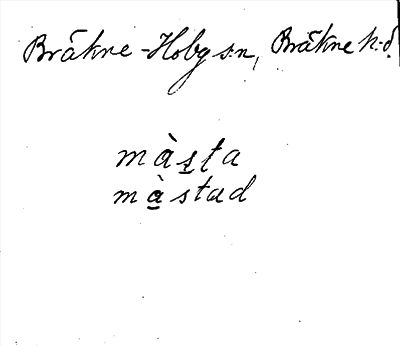 Bräkne-Hoby sn, Bräkne h-d.
màs̱ṯa
mà̱stad